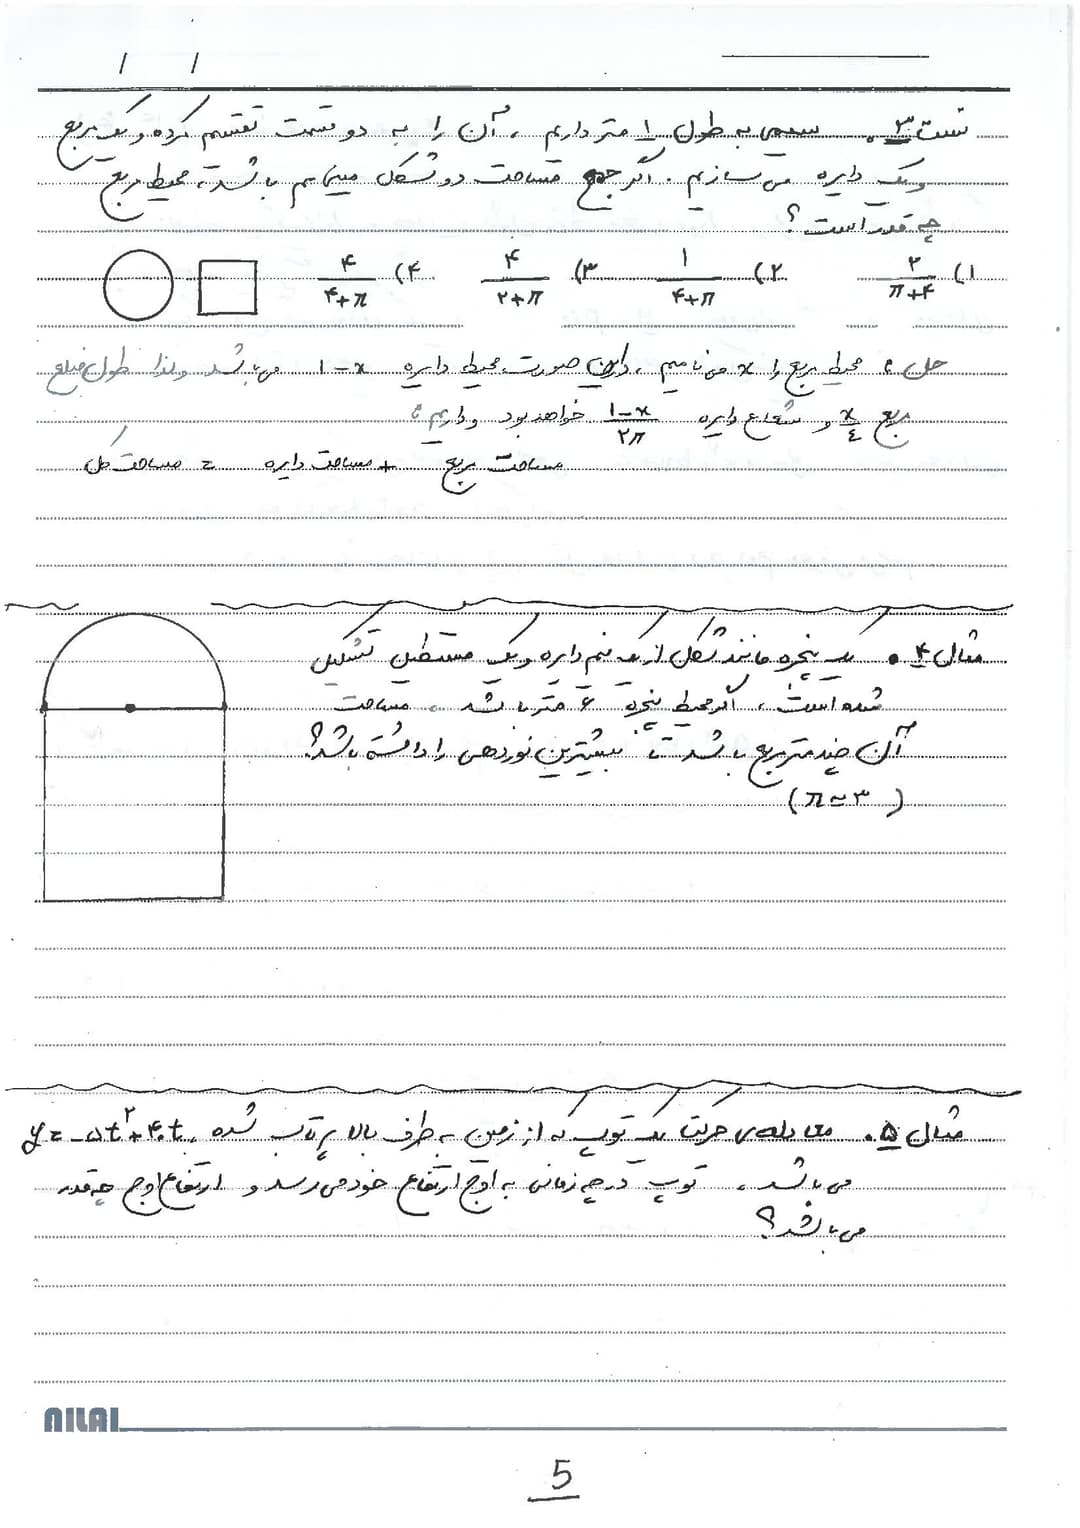 تست ۳. سیمی به طول ۱ متر داریم، آن را به دو قسمت تقسیم کرده و یک مربع
و یک دایره می سازیم. اگر جمع مساحت دو شکل مینیمم باشد، محیط مربع
چه قدر است؟
۱) ۲/(π+۴) ۲) ۱/(۴+π) ۳) ۴/(۲+π) ۴) ۴/(۴+π)
حل: محیط مربع را x می نامیم، در این صورت محیط دایره ۱-x می باشد ولذا طول ضلع
مربع x/۴ و شعاع دایره (۱-x)/۲π خواهد بود و داریم:
مساحت مربع + مساحت دایره = مساحت کل
مثال ۴. یک پنجره مانند شکل از یک نیم دایره و یک مستطیل تشکیل
شده است، اگر محیط پنجره ۶ متر باشد، مساحت
آن چند متر مربع باشد تا بیشترین نوردهی را داشته باشد؟
(π≃۳)
مثال ۵. معادله ی حرکت یک توپ که از زمین به طرف بالا پرتاب شده، y=-۵t²+۴۰t
می باشد، توپ در چه زمانی به اوج ارتفاع خود می رسد و ارتفاع اوج چه قدر
می باشد؟
NILAI
5